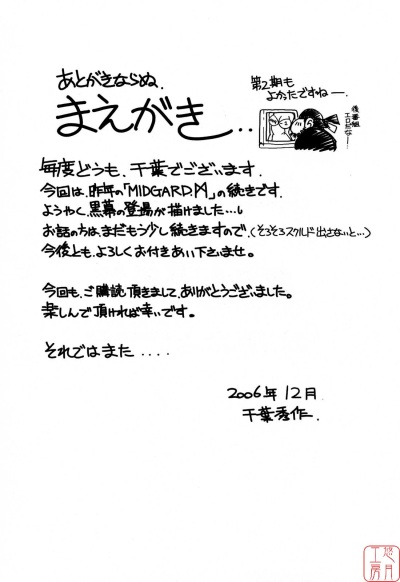 あとがきならぬ、
まえがき・・
第2期も
よかったですねー。
後番組
エロだなー!
毎度どうも、千葉でございます。
今回は、昨年の「MIDGARD.M」の続きです。
ようやく、黒幕の登場が描けました…。
お話の方は、まだもう少し続きますので、(そろそろスクルド出さないと…)
今後とも、よろしくお付きあい下さいませ。
今回も、ご購読頂きまして、ありがとうございました。
楽しんで頂ければ幸いです。
それではまた・・・・
2006年12月
千葉秀作.
悠月工房